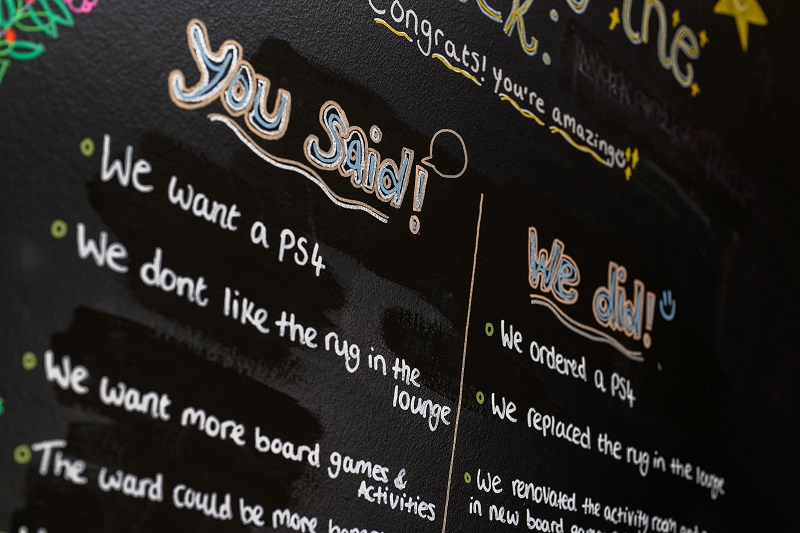 the
Congrats! You're amazing
You Said!
We want a PS4
We dont like the rug in the
lounge
We want more board games &
Activities
The ward could be more
We did!
We ordered a PS4
We replaced the rug in the lounge
We renovated the activity room and
in new board